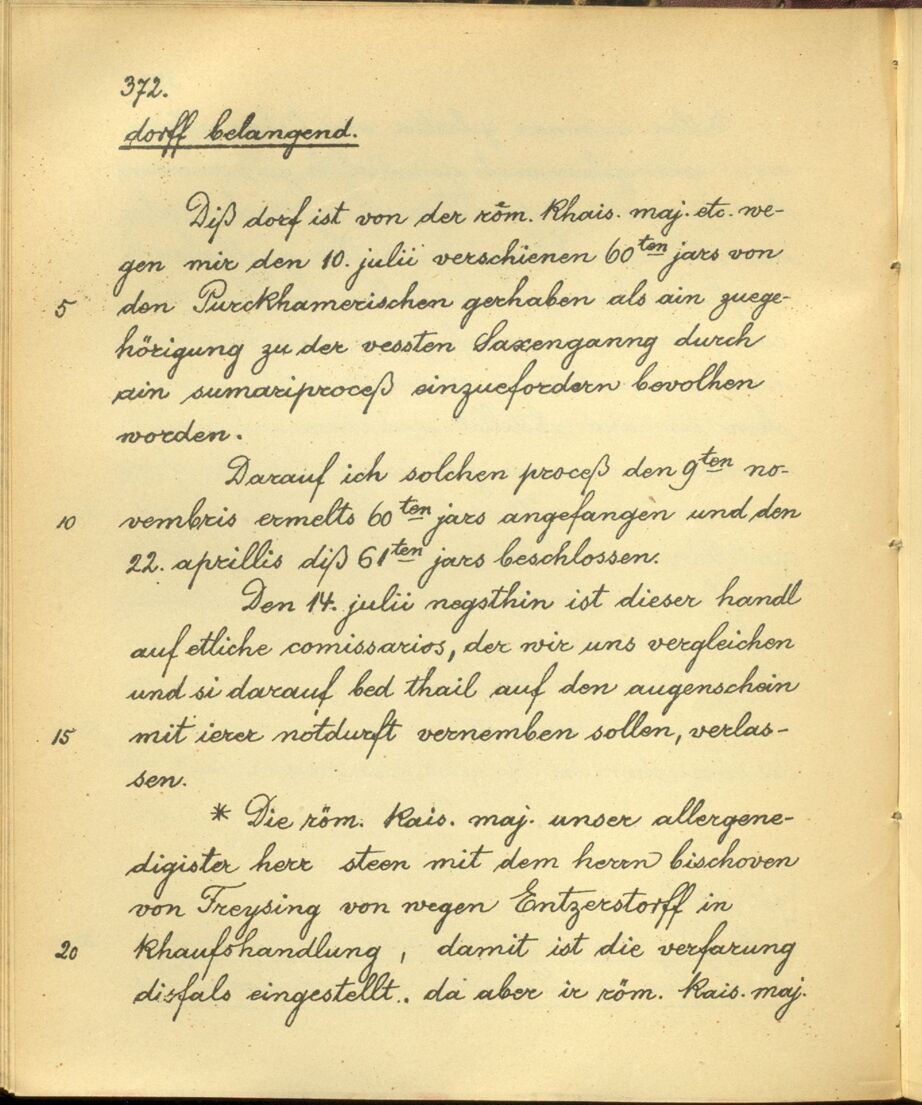 372.
dorff belangend.
Diß dorf ist von der röm. Khais. maj. etc. we-
gen mir den 10. julii verschienen 60ten jars von
5 den Purckhamerischen gerhaben als ain zuege-
hörigung zu der vessten Saxenganng durch
ain sumariproceß einzuefordern bevolhen
worden.
Darauf ich solchen proceß den 9ten no-
10 vembris ermelts 60ten jars angefangen und den
22. aprillis diß 61ten jars beschlossen.
Den 14. julii negsthin ist dieser handl
auf etliche comissarios, der wir uns vergleichen
und si darauf bed thail auf den augenschein
15 mit ierer notdurft vernemben sollen, verlas-
sen.
* Die röm. kais. maj. unser allergene-
digister herr steen mit dem herrn bischoven
von Freysing von wegen Entzerstorff in
20 khaufshandlung, damit ist die verfarung
disfals eingestellt. da aber ir röm. kais. maj.